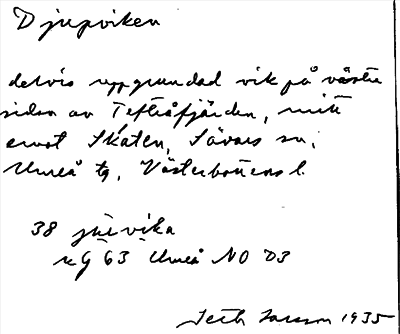 Djupviken
delvis uppgrundad vik på västra
sidan av Tefteåfjärden, mitt
emot Skaten, Sävars sn,
Umeå tg, Västerbottens l.
38 jüvika
rG 63 Umeå NO D3
Larsson 1935